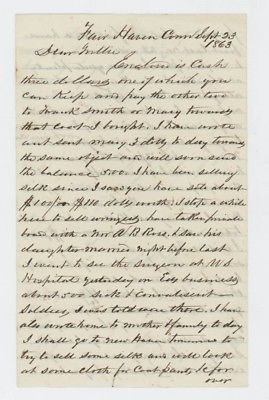 Fair Haven Conn Sept 23
1863
Dear Willie
Enclose is Cash
three dollars one of which you
can Keep and pay the other two
to Frank Smith or Mary towards
that Coat I bought. I have wrote
and sent Mary 3 dolls to day towards
the same object and will soon send
the balance, 5.00. I have been selling
silk since I saw you have sold about
$100/00 or $110 dolls worth. I stop a while
here to sell
board with a Mr A B Rose. I saw his
daughter married night before last
I went to see the surgeon at U S
Hospital yesterday on Eds business
about 500 sick & Convalescent
Soldiers, I was told were there. I have
also wrote home to Mother & family to day
I shall go to New Haven tomorrow to
try to sell some silk and will look
at some cloth for Coat pants &c for
over